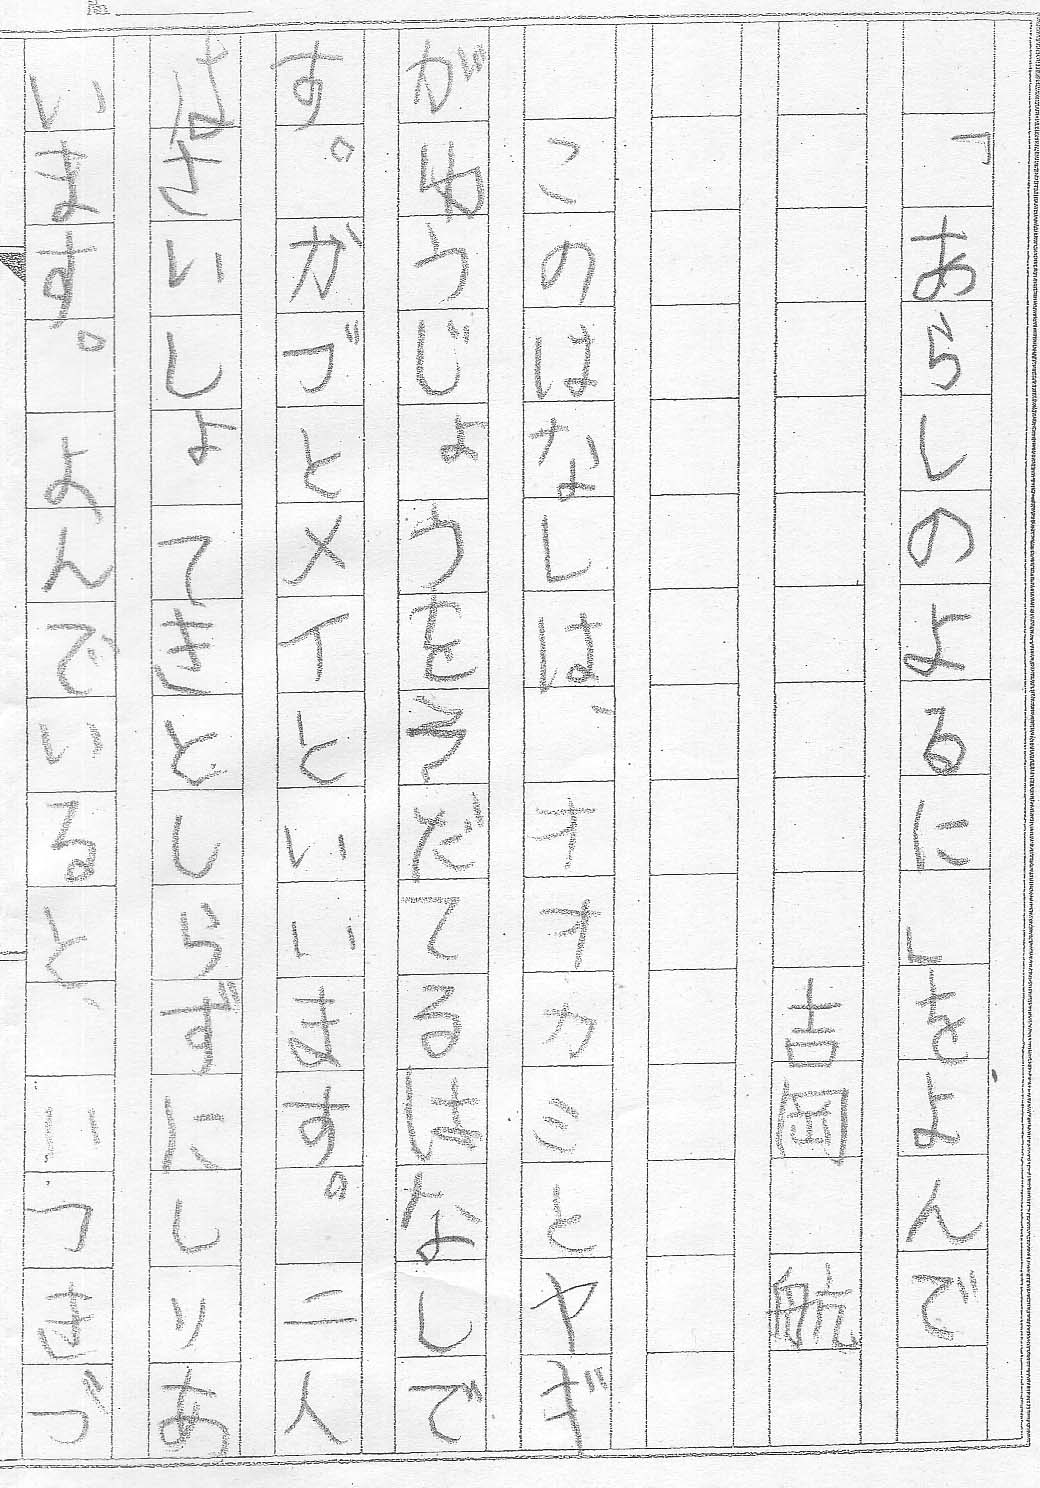 「あらしのよるに」をよんで
吉岡 航
このはなしは、オオカミとヤギ
がゆうじょうをそだてるはなしで
す。ガブとメイといいます。二人
はさいしょてきとしらずにしりあ
います。よんでいると、いつきづ